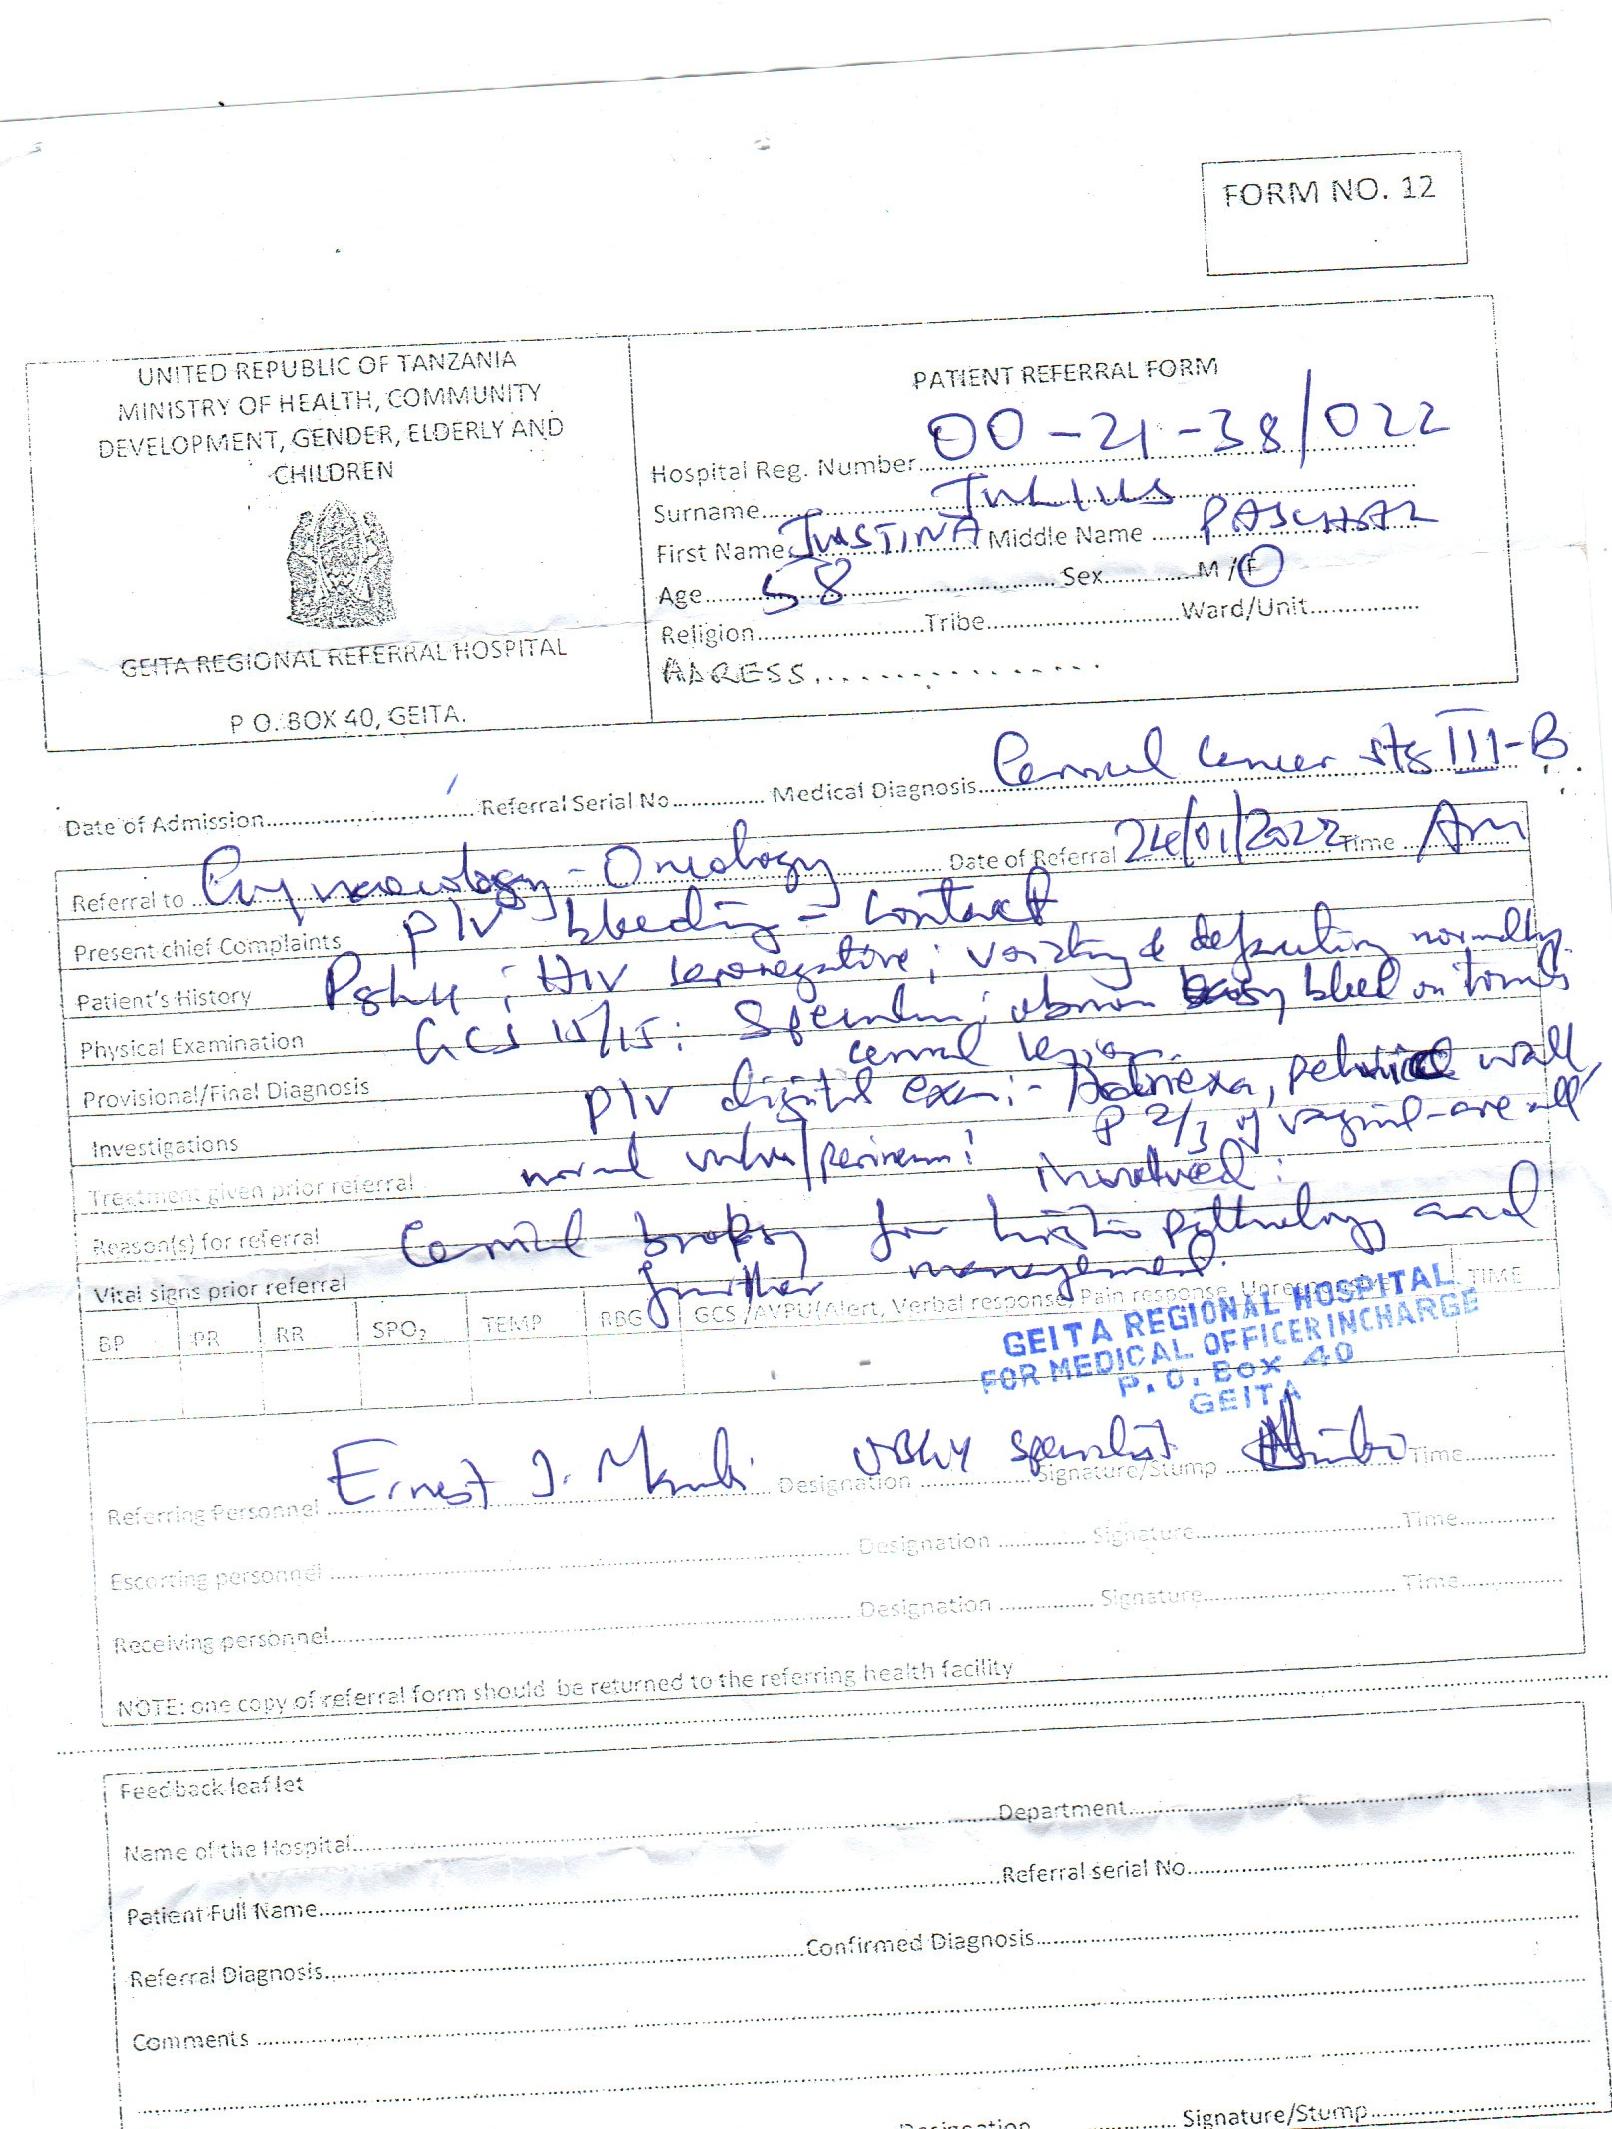 FORM NO. 12
UNITED REPUBLIC OF TANZANIA
MINISTRY OF HEALTH, COMMUNITY
DEVELOPMENT, GENDER, ELDERLY AND
CHILDREN
GEITA REGIONAL REFERRAL HOSPITAL
P O. BOX 40, GEITA.
PATIENT REFERRAL FORM
Hospital Reg. Number 00-21-38/022
Surname JULIUS
First Name JUSTINA Middle Name PASCHAL
Age 58 Sex M / F
Religion Tribe Ward/Unit
ADRESS
Date of Admission Referral Serial No Medical Diagnosis Cervical Cancer stg III-B
Referral to Gynaecology - Oncology Date of Referral 24/01/2022 Time Am
Present chief Complaints P/V bleeding - contact
Patient's History HIV seronegative; voiding & defecating normally
Physical Examination GCS 15/15; Speculum; bleed on touch
cervical lesion
Provisional/Final Diagnosis P/V digital exam:- Adnexa, pelvic wall
Investigations 2/3 of vagina are all
normal vulva/perineum! involved
Treatment given prior referral
Reason(s) for referral Cervical biopsy for histopathology and
further management.
Vital signs prior referral
BP PR RR SPO₂ TEMP RBG GCS /AVPU(Alert, Verbal response, Pain response, TIME
GEITA REGIONAL HOSPITAL
FOR MEDICAL OFFICER INCHARGE
P. O. BOX 40
GEITA
Referring Personnel Ernest J. Designation OBGY specialist Signature/Stump Time
Escorting personnel Designation Signature Time
Receiving personnel Designation Signature Time
NOTE: one copy of referral form should be returned to the referring health facility
Feedback leaflet
Name of the Hospital Department
Patient Full Name Referral serial No
Referral Diagnosis Confirmed Diagnosis
Comments
Designation Signature/Stump